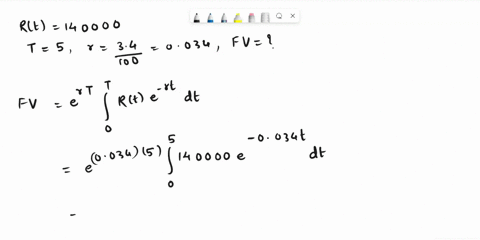 R(t) = 140000
T = 5, r = 3.4/100 = 0.034, FV = ?
FV = e^{rT} ∫_0^T R(t) e^{-rt} dt
= e^{(0.034)(5)} ∫_0^5 140000 e^{-0.034t} dt
=